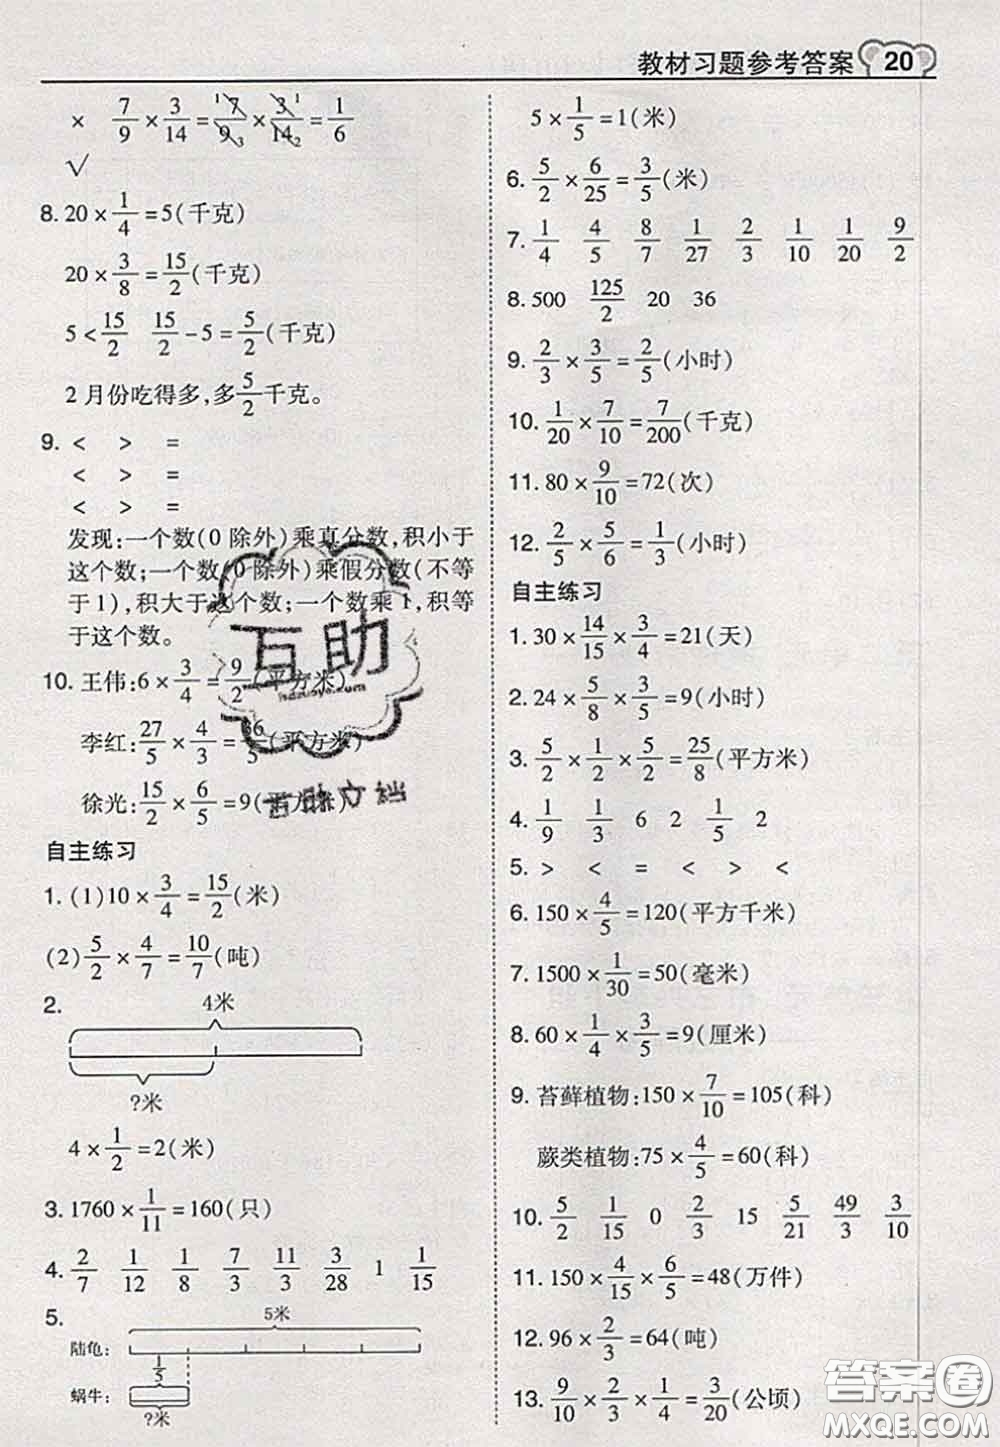 教材习题参考答案 20
× 7/9 × 3/14 = 7/9 × 3/14 = 1/6
1 3 1 2
√
8. 20 × 1/4 = 5(千克)
20 × 3/8 = 15/2(千克)
5 < 15/2 15/2 - 5 = 5/2(千克)
2月份吃得多,多5/2千克。
9. < > =
< > =
< > =
发现:一个数(0除外)乘真分数,积小于
这个数;一个数(0除外)乘假分数(不等
于1),积大于这个数;一个数乘1,积等
于这个数。
10. 王伟:6 × 3/4 = 9/2(平方米)
李红:27/5 × 4/3 = 36/5(平方米)
徐光:15/2 × 6/5 = 9(平方米)
自主练习
1. (1)10 × 3/4 = 15/2(米)
(2)5/2 × 4/7 = 10/7(吨)
2.
4米
?米
4 × 1/2 = 2(米)
3. 1760 × 1/11 = 160(只)
4. 2/7 1/12 1/8 7/3 11/3 3/28 1 1/15
5.
5米
陆龟:
1/5
蜗牛:
?米
5 × 1/5 = 1(米)
6. 5/2 × 6/25 = 3/5(米)
7. 1/4 4/5 8/7 1/27 2/3 1/10 1/20 9/2
8. 500 125/2 20 36
9. 2/3 × 3/5 = 2/5(小时)
10. 1/20 × 7/10 = 7/200(千克)
11. 80 × 9/10 = 72(次)
12. 2/5 × 5/6 = 1/3(小时)
自主练习
1. 30 × 14/15 × 3/4 = 21(天)
2. 24 × 5/8 × 3/5 = 9(小时)
3. 5/2 × 1/2 × 5/2 = 25/8(平方米)
4. 1/9 1/3 6 2 1/5 2
5. > < = < > <
6. 150 × 4/5 = 120(平方千米)
7. 1500 × 1/30 = 50(毫米)
8. 60 × 1/4 × 3/5 = 9(厘米)
9. 苔藓植物:150 × 7/10 = 105(科)
蕨类植物:75 × 4/5 = 60(科)
10. 5/2 1/15 0 2/3 15 5/21 49/3 3/10
11. 150 × 4/15 × 6/5 = 48(万件)
12. 96 × 2/3 = 64(吨)
13. 9/10 × 2/3 × 1/4 = 3/20(公顷)
互助
互助文档
答案圈
MXQE.COM